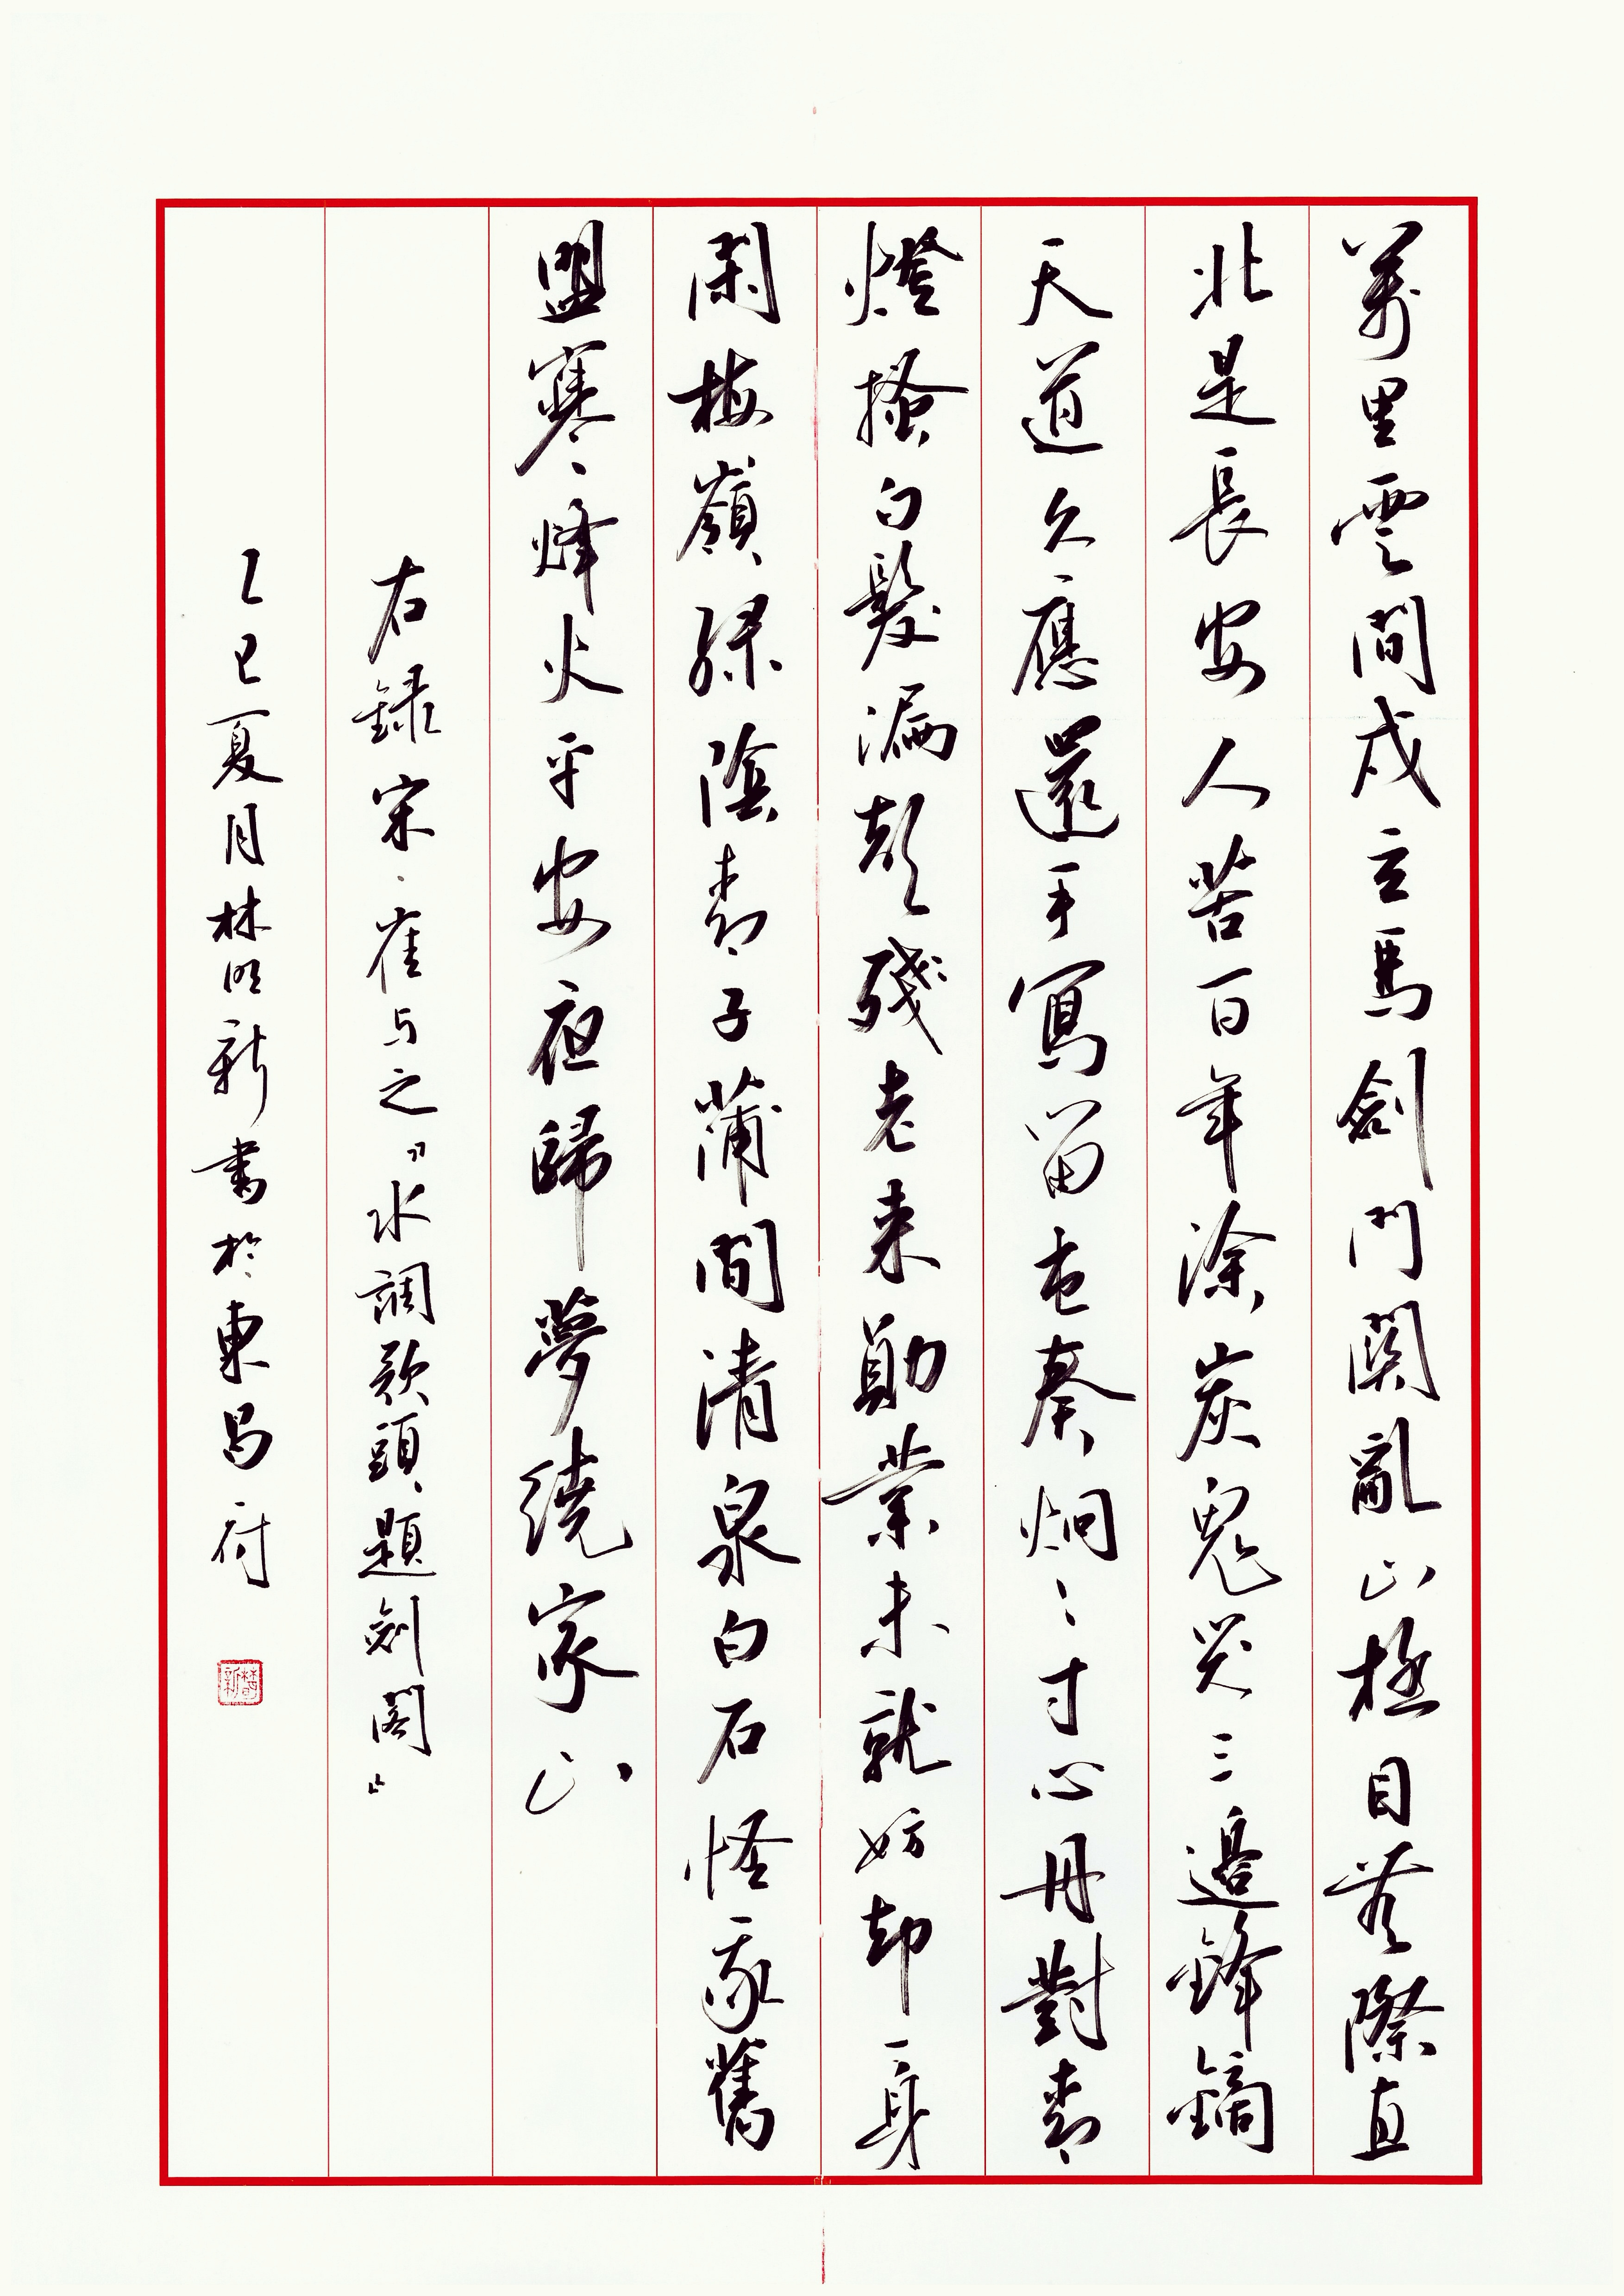 萬里雲間戍立馬劍門關亂山極目無際直
北是長安人苦百年涂炭鬼哭三邊鋒鏑
天道久應還手寫留屯奏炯〻寸心丹對青
燈搔白髮漏聲殘老来勛業未就妨却一身
閑梅嶺綠陰青子蒲間清泉白石怪我舊
盟寒烽火平安夜歸夢繞家山
右録宋·崔与之『水調歌頭·題劍閣』
乙巳夏月林明新書於東昌府